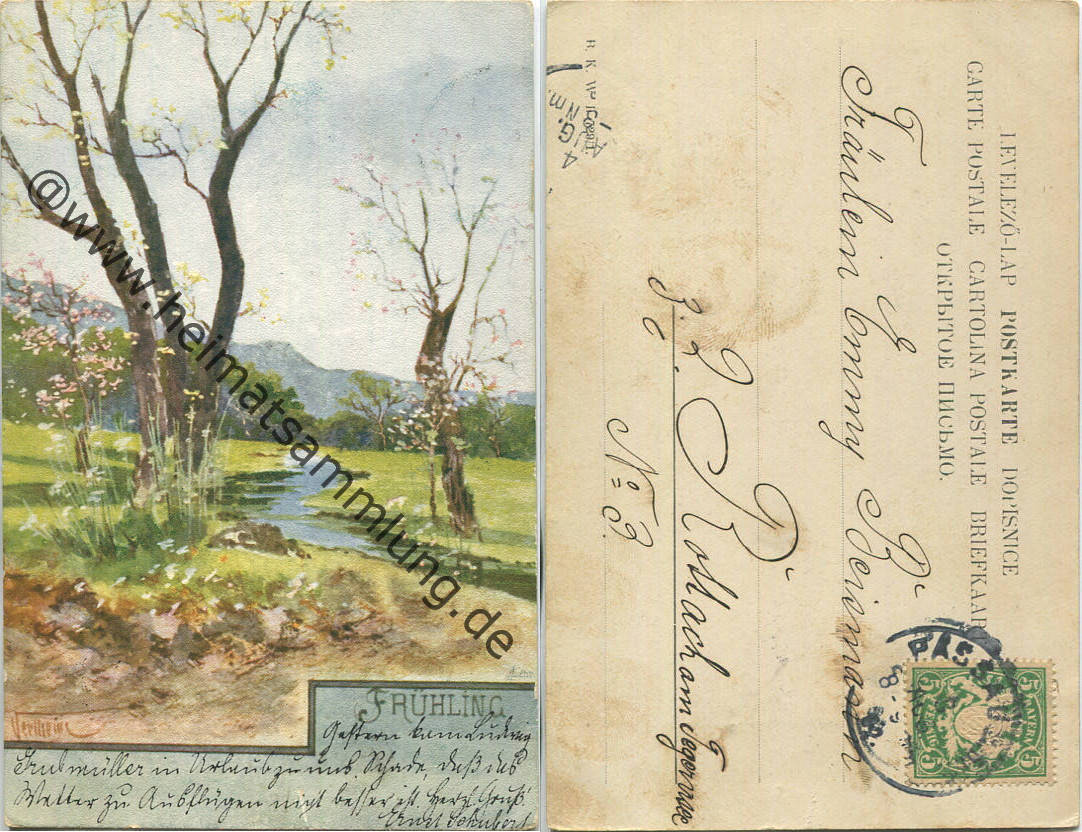 @www.heimatsammlung.de
FRÜHLING
Gestern kam Ludwig
in Urlaub zu uns. Schade, daß das
Wetter zu Ausflügen nicht besser ist. Herzl. Gruß!
Schubert
LEVELEZŐ-LAP POSTKARTE DOPISNICE
CARTE POSTALE CARTOLINA POSTALE BRIEFKAART
ОТКРЫТОЕ ПИСЬМО.
Fräulein Emmy
in Rottach am Tegernsee
No 3
B. K. W. I.
PASSAU
5 BAYERN 5
5 5